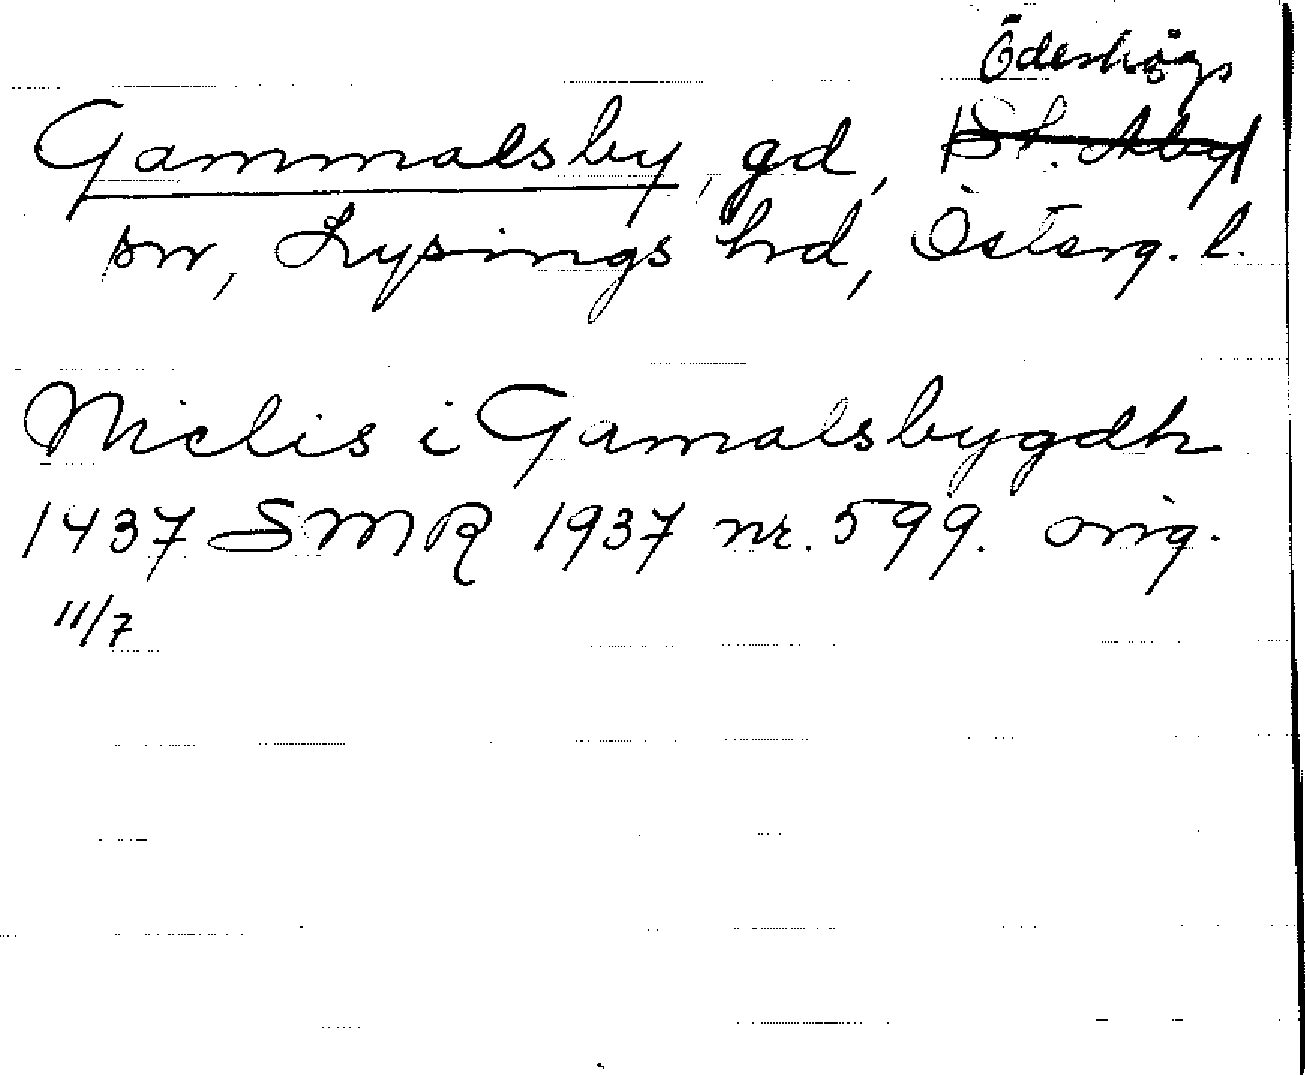 Ödeshögs
Gammalsby, gd, St. Åby
sn, Lysings hrd, Österg. l.
Niclis i Gamalsbygdh
1437 SMR 1937 nr. 599. orig.
11/7